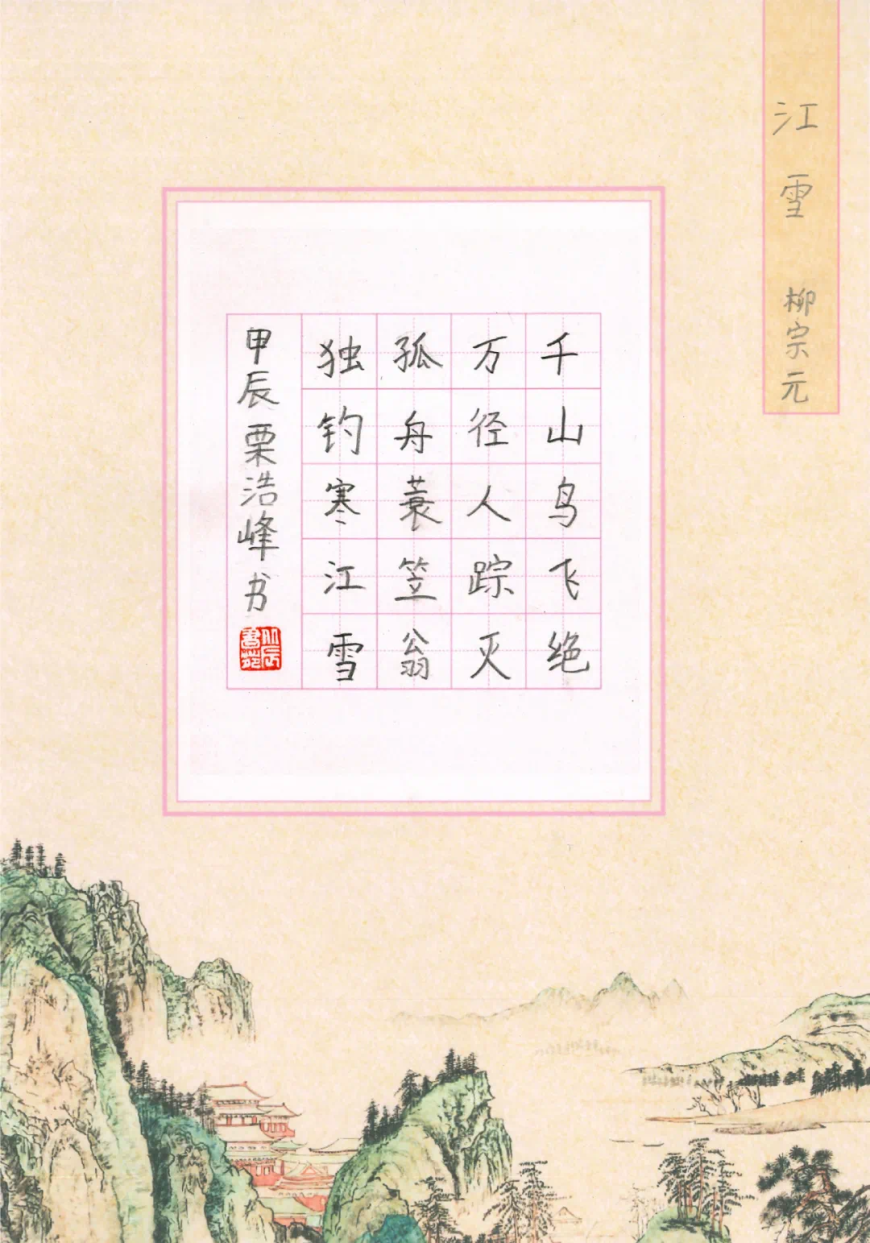 江雪 柳宗元
千山鸟飞绝
万径人踪灭
孤舟蓑笠翁
独钓寒江雪
甲辰栗浩峰书